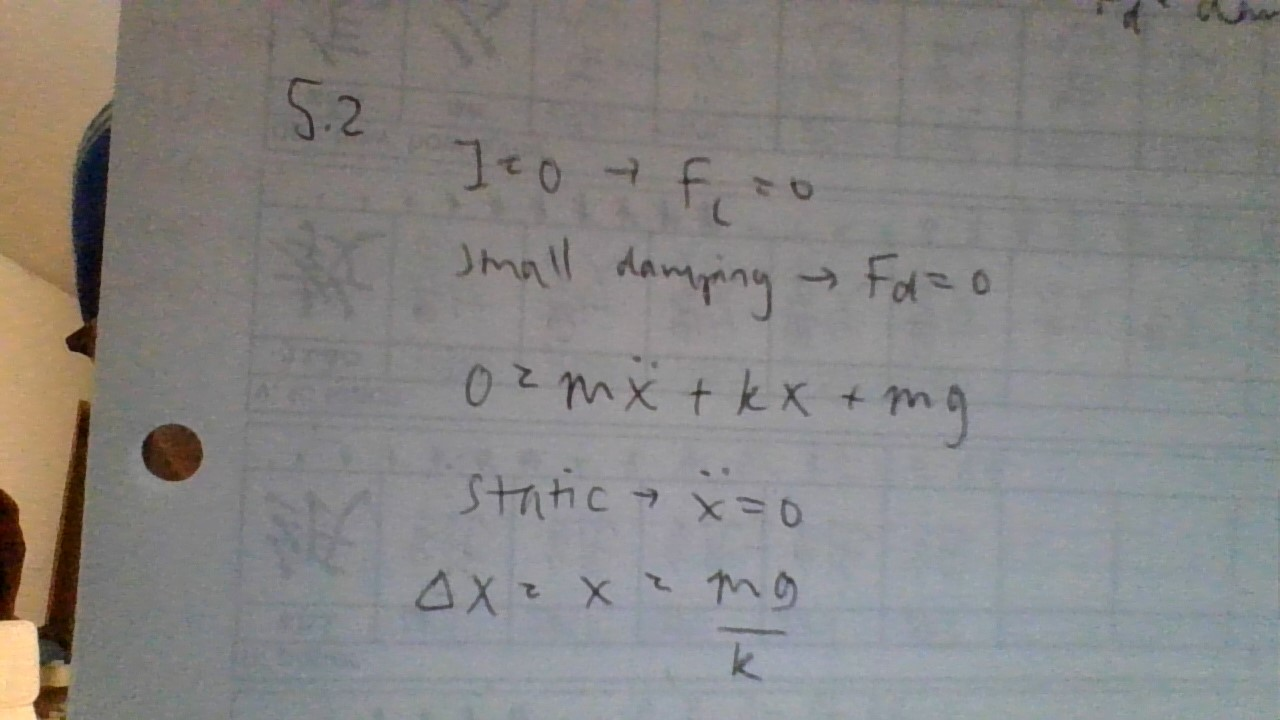 5.2
I = 0 → F_L = 0
small damping → Fd = 0
0 = mẍ + kx + mg
static → ẍ = 0
Δx = x = mg/k